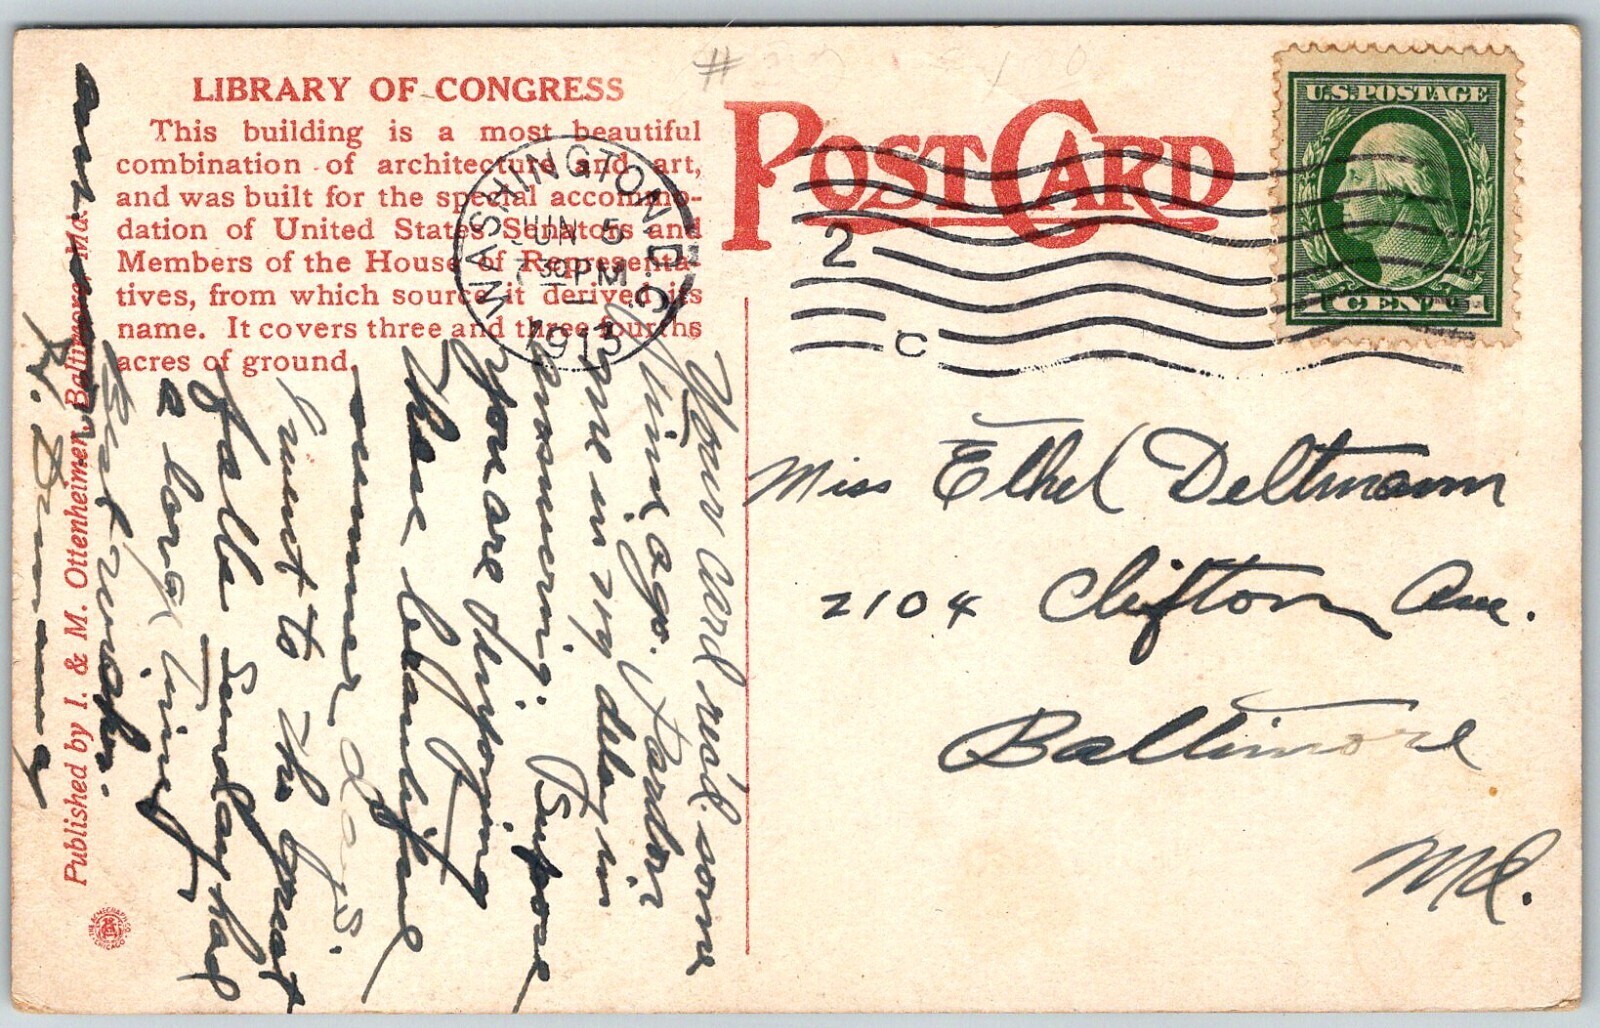 LIBRARY OF CONGRESS
This building is a most beautiful
combination of architecture and art,
and was built for the special accommo-
dation of United States Senators and
Members of the House of Representa-
tives, from which source it derived its
name. It covers three and three fourths
acres of ground.
Published by I. & M. Ottenheimer, Baltimore, Md.
POST CARD
WASHINGTON, D.C.
JUN 5
7 30 PM
1913
2
C
U.S. POSTAGE
1 CENT 1
#
Your card rec'd. some
time ago. Pardon
me in my delay in
answering. Supose
you are enjoying
these beautiful
summer days.
I went to the great
Falls Sunday had
a long time
Best wishes
Miss Ethel Deltmann
2104 Clifton Ave.
Baltimore
Md.